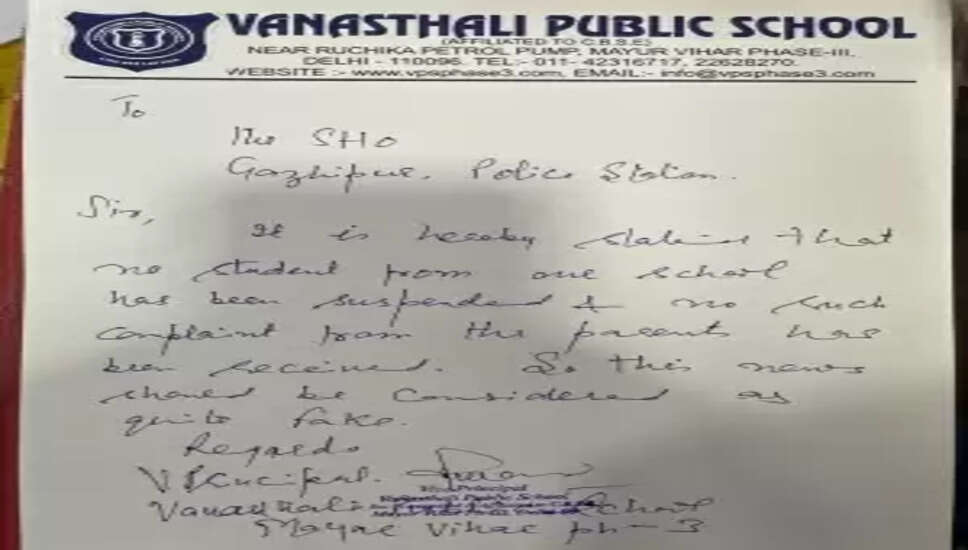 VANASTHALI PUBLIC SCHOOL
(AFFILIATED TO C.B.S.E)
NEAR RUCHIKA PETROL PUMP, MAYUR VIHAR PHASE-III,
DELHI - 110096. TEL:- 011- 42316717, 22628270.
WEBSITE :- www.vpsphase3.com, EMAIL:- info@vpsphase3.com
To
The SHO
Gazhipur, Police Station.
Sir,
It is hereby stating that
no student from our school
has been suspended & no such
complaint from the parents has
been received. So this news
should be considered as
quite fake.
Regards
V Principal.
Principal
Vanasthali Public School
Vanasthali School
Mayur Vihar ph-3